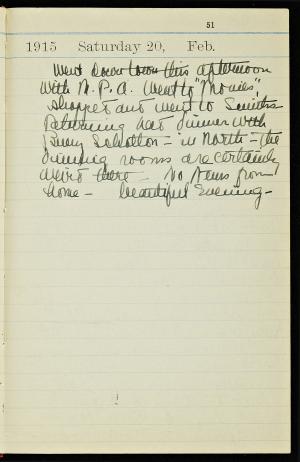 51
1915 Saturday 20, Feb.
Went down town this afternoon
with N. P. A. Went to "Movies",
shopped and went to Smiths
Returning had dinner with
in North - the
dining rooms are certainly
weird here - No news from
home - beautiful Evening -